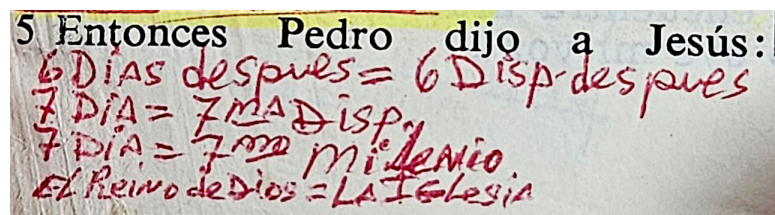 5 Entonces Pedro dijo a Jesús:
6 DiAs despues = 6 Disp. despues
7 DiA = 7 MA Disp.
7 DiA = 7mo Milenio.
EL Reino de Dios = LA IGlesiA